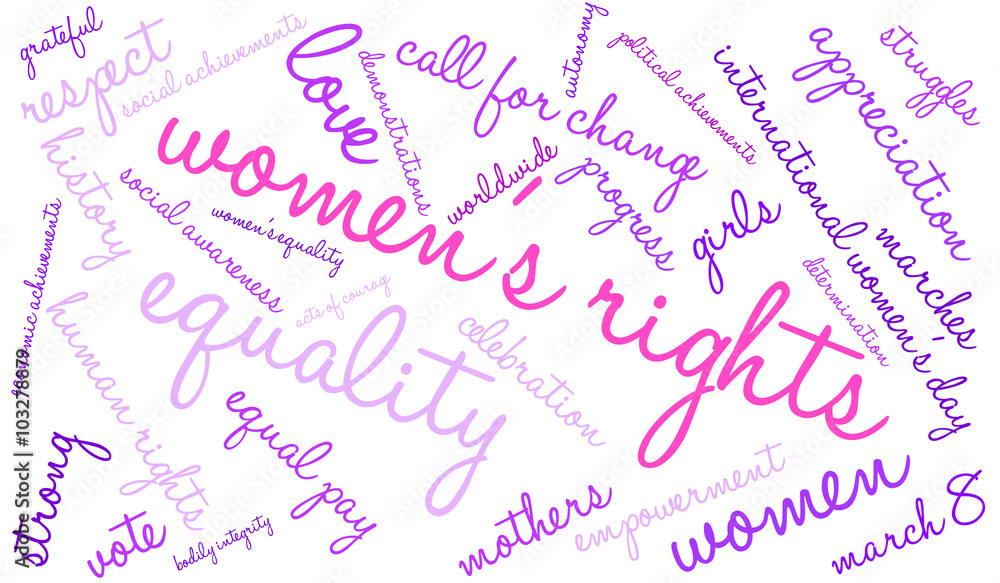 grateful
respect
social achievements
love
demonstrations
call for change
autonomy
political achievements
international women's day
appreciation
struggles
history
social awareness
women's equality
women's rights
worldwide
progress
girls
marches
determination
acts of courag
equality
celebration
human rights
equal pay
strong
vote
bodily integrity
mothers
empowerment
women
march 8
Adobe Stock | #103278879
Adobe Stock